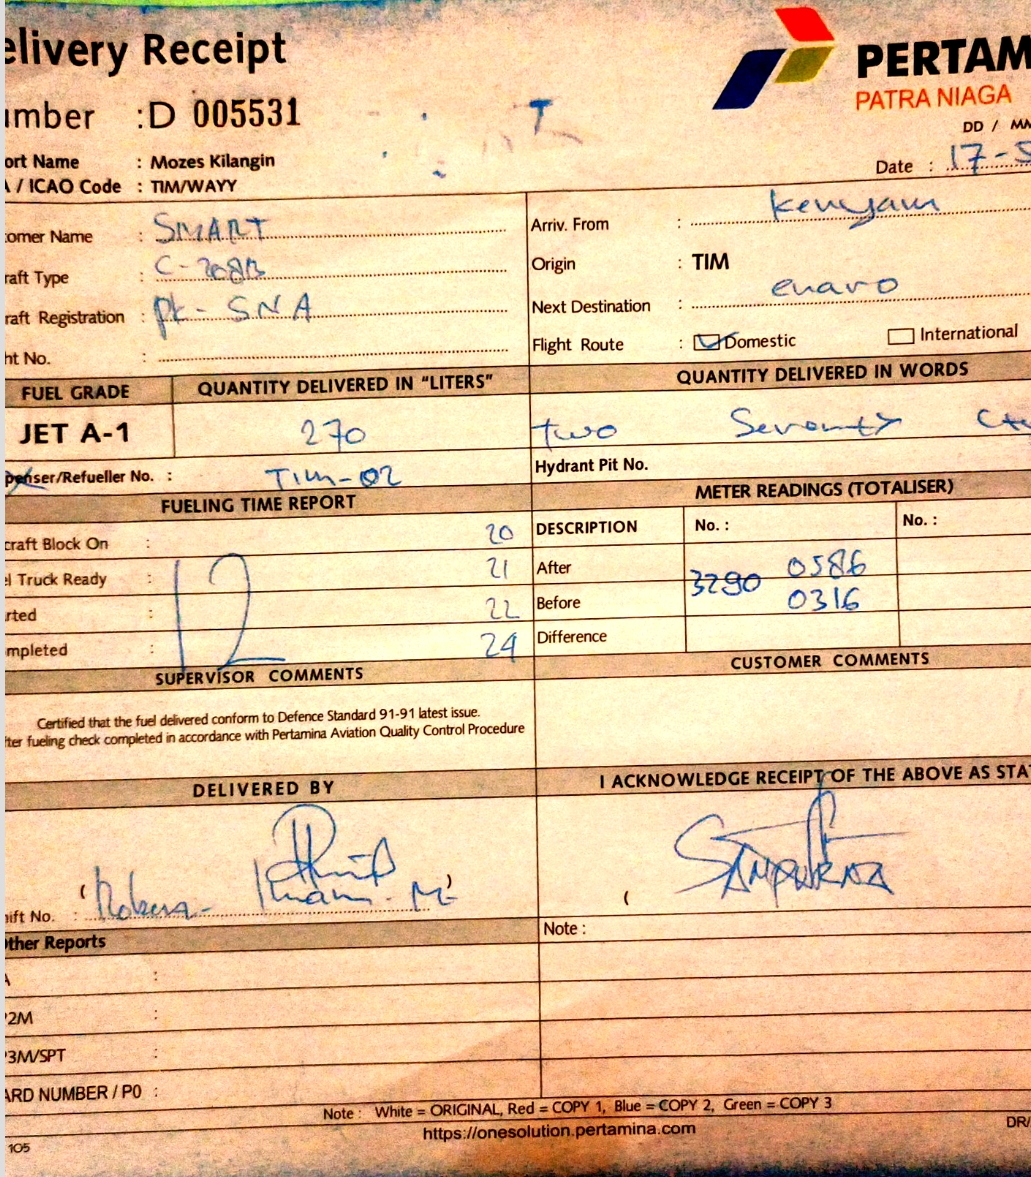 elivery Receipt
PERTAM
PATRA NIAGA
umber : D 005531
DD / MM
ort Name : Mozes Kilangin
Date : 17-
/ ICAO Code : TIM/WAYY
omer Name : SMART
Arriv. From : kenyam
raft Type : C-208B
Origin : TIM
raft Registration : pk - SNA
Next Destination : enaro
ht No. :
Flight Route : Domestic International
FUEL GRADE QUANTITY DELIVERED IN "LITERS" QUANTITY DELIVERED IN WORDS
JET A-1 270 two Seventy
penser/Refueller No. : TIM-02
Hydrant Pit No.
FUELING TIME REPORT METER READINGS (TOTALISER)
craft Block On : 20
DESCRIPTION No. : No. :
el Truck Ready : 12 21
After 3290 0586
rted : 22
Before 0316
mpleted : 24
Difference
SUPERVISOR COMMENTS CUSTOMER COMMENTS
Certified that the fuel delivered conform to Defence Standard 91-91 latest issue.
ter fueling check completed in accordance with Pertamina Aviation Quality Control Procedure
DELIVERED BY I ACKNOWLEDGE RECEIPT OF THE ABOVE AS STAT
hift No. :
Other Reports
Note :
2M :
3M/SPT :
ARD NUMBER / P0 :
Note : White = ORIGINAL, Red = COPY 1, Blue = COPY 2, Green = COPY 3
https://onesolution.pertamina.com
105
DR/